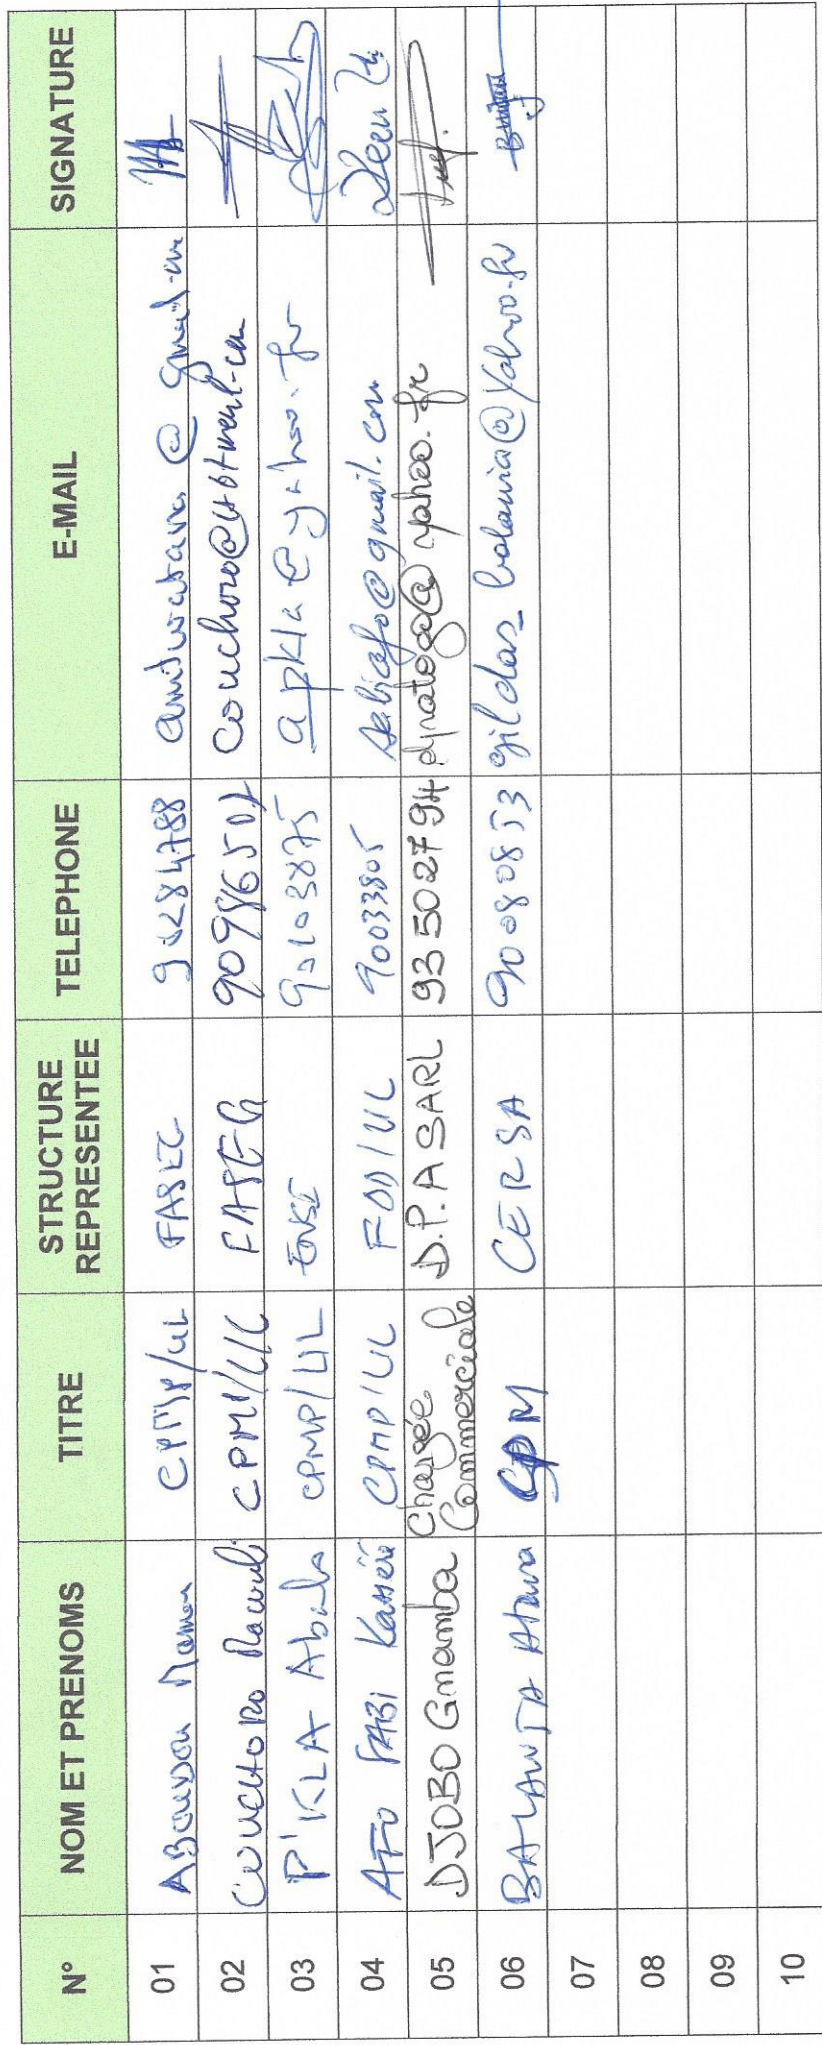 N° NOM ET PRENOMS TITRE STRUCTURE REPRESENTEE TELEPHONE E-MAIL SIGNATURE
01 FASEG @
02 COUCHORO CPMP/UL FASEG 90986501 couchoro@hotmail.com
03 P'KLA CPMP/UL 90103875 apkla@yahoo.fr
04 AFO SABI Kasséré CPMP/UL FDD/UL 90033805 sabiafo@gmail.com
05 DJOBO Gnamba Chargée Commerciale D.P.A SARL 93 5027 94 dynatogo@yahoo.fr
06 BALAWIA CPM CERSA 90080853 gildas_balawia@yahoo.fr
07
08
09
10